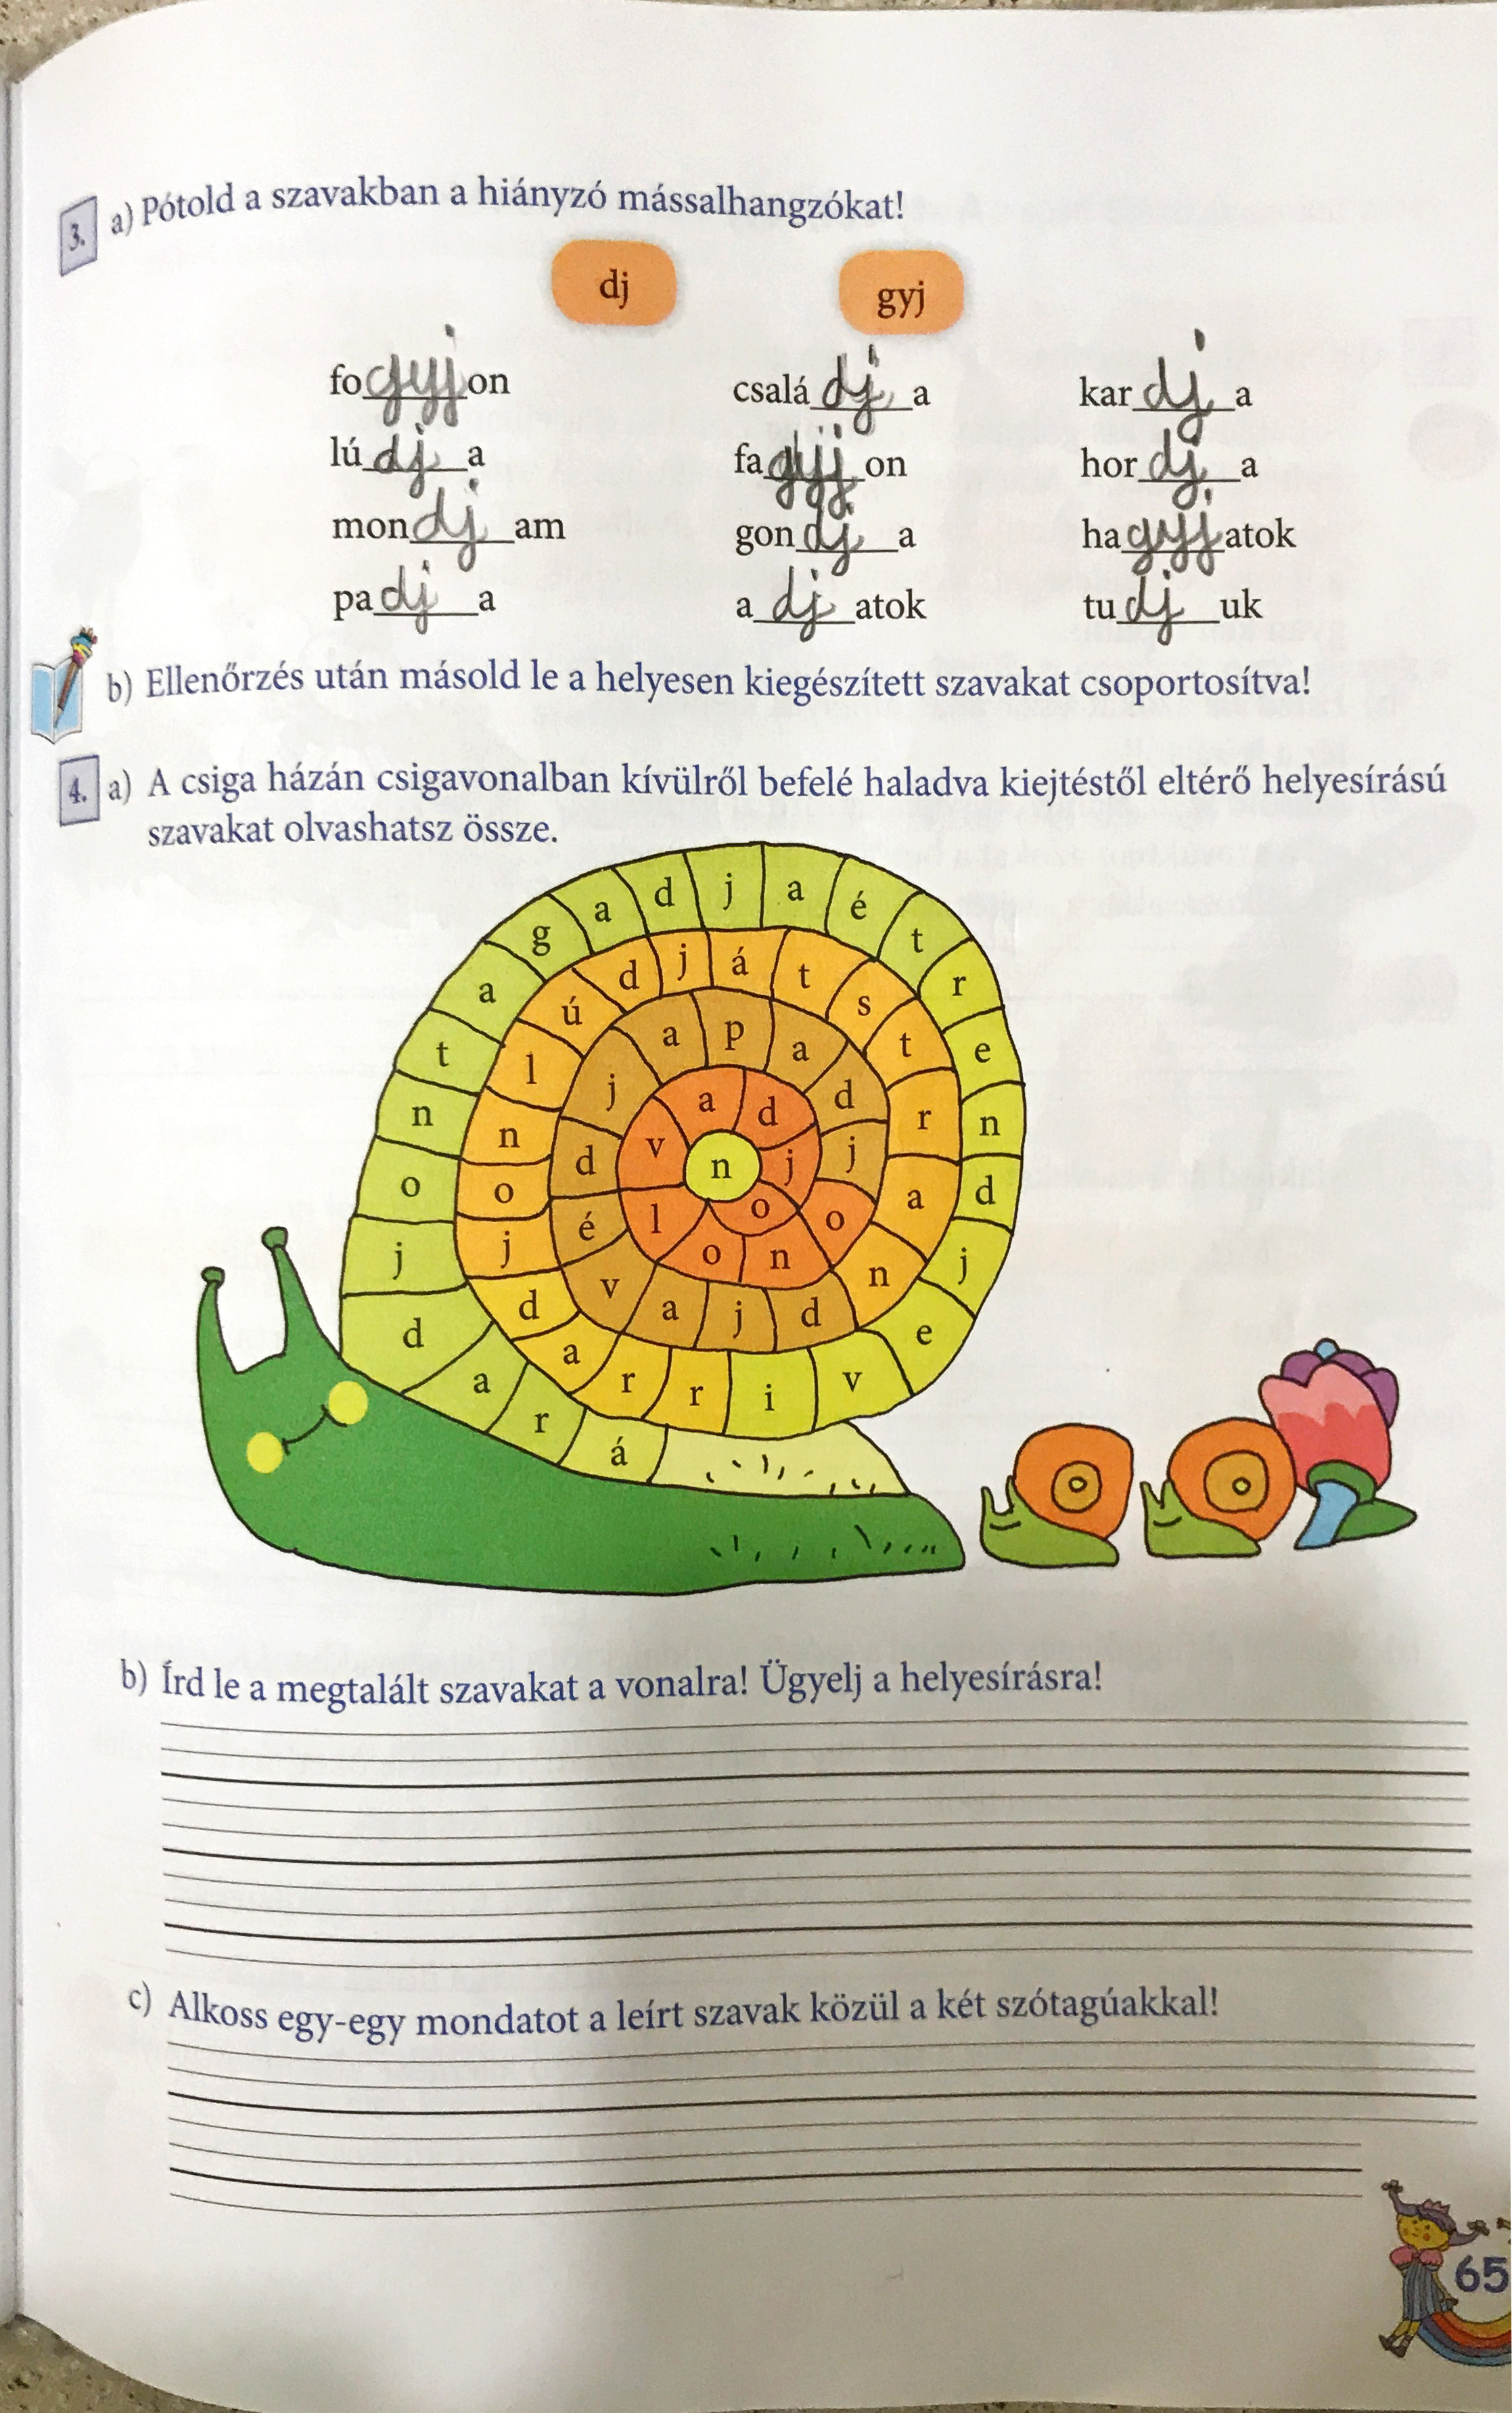 3. a) Pótold a szavakban a hiányzó mássalhangzókat!
dj gyj
fogyjon családja kardja
lúdja fagyjon hordja
mondjam gondja hagyjatok
padja adjatok tudjuk
b) Ellenőrzés után másold le a helyesen kiegészített szavakat csoportosítva!
4. a) A csiga házán csigavonalban kívülről befelé haladva kiejtéstől eltérő helyesírású
szavakat olvashatsz össze.
á r a d j o n t a g a d j a é t r e n d j e v i r r a d j o n l ú d j á t s t r a n d j a v é d j a p a d j o n o l v a d j o n
b) Írd le a megtalált szavakat a vonalra! Ügyelj a helyesírásra!
c) Alkoss egy-egy mondatot a leírt szavak közül a két szótagúakkal!
65